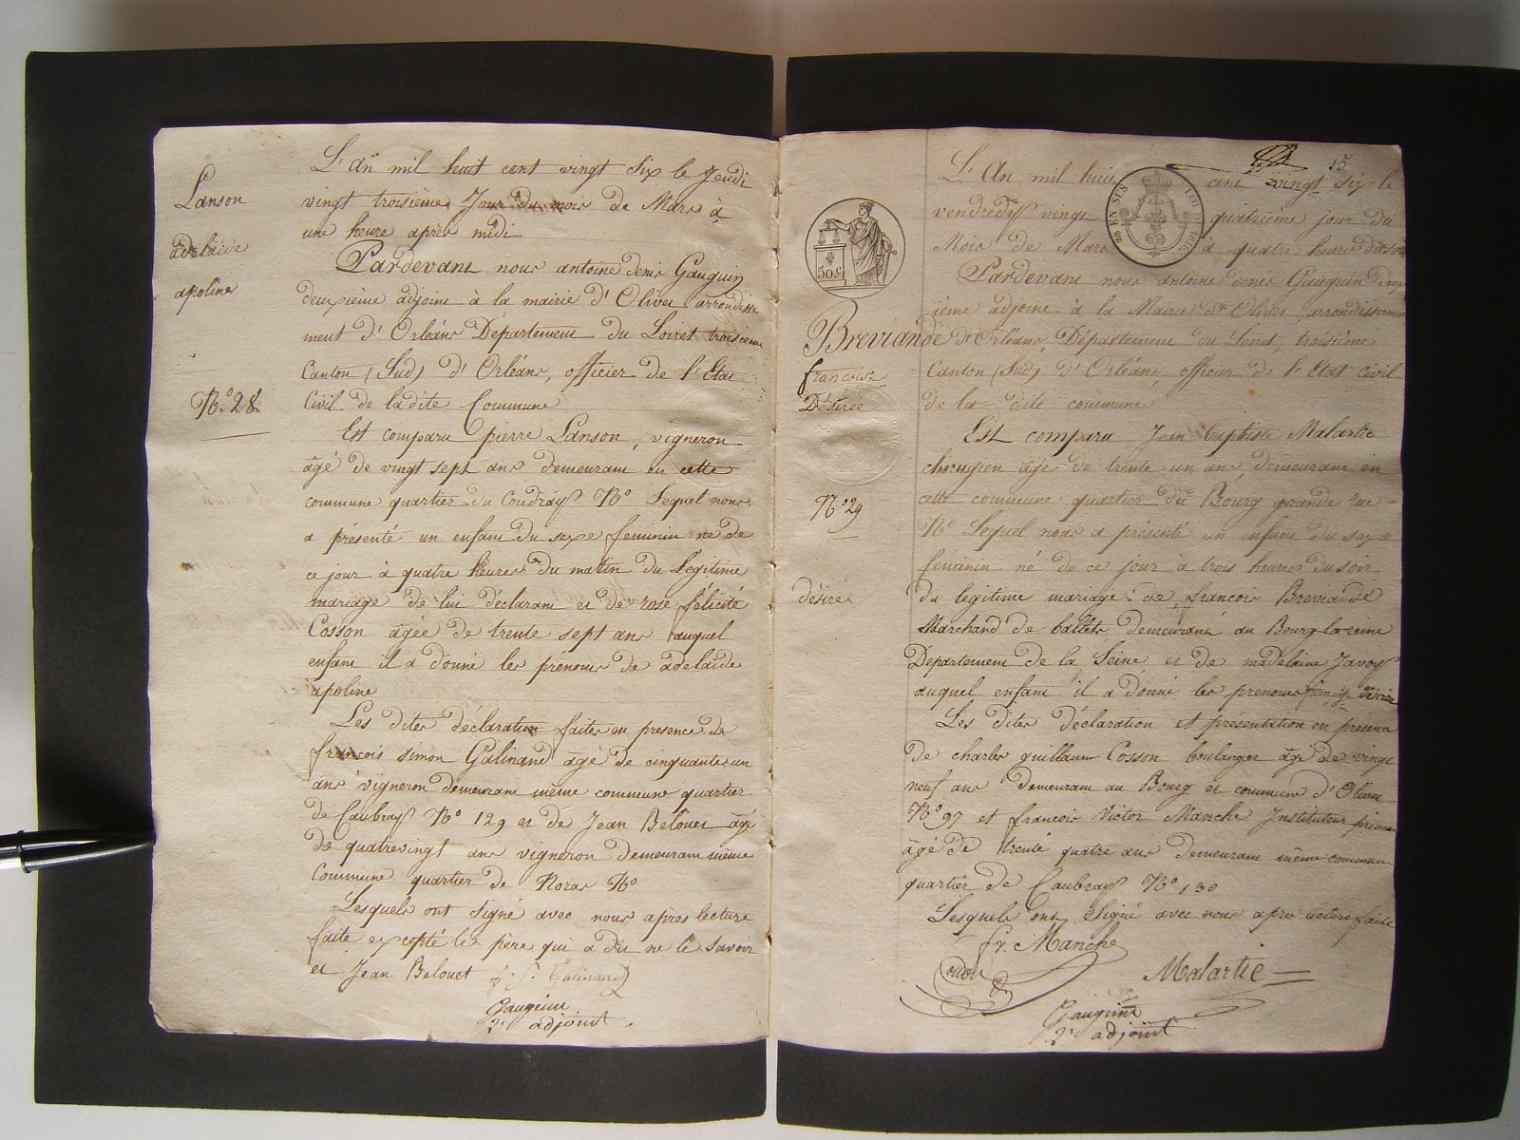 Lanson
adelaïde
apoline
N.o 28.
L'an mil huit cent vingt six le Jeudi
vingt troisieme Jour du mois de Mars à
une heure apres midi
Pardevant nous antoine denis Gauguin
deuxsième adjoint à la mairie d'Olivet arrondisse
ment d'Orléans Département du Loiret troisième
Canton (Sud) d'Orléans, officier de l'Etat
Civil de la dite Commune
Est comparu pierre Lanson, vigneron
âgé de vingt sept ans demeurant en cette
commune quartier du Coudray N.o Lequel nous
a présenté un enfant du sexe feminin né de
ce jour à quatre heures du matin du Légitime
mariage de lui déclarant et de rose félicité
Cosson âgée de trente sept ans auquel
enfant il a donné les prénoms de adelaïde
apoline
Les dites déclaration faites en presence de
françois simon Galinand âgé de cinquante un
ans vigneron demeurant même commune quartier
de Caubray N.o 129 et de Jean Belouet âgé
de quatrevingt ans vigneron demeurant même
Commune quartier de Noras N.o
Lesquels ont signé avec nous apres lecture
faite excepté le père qui a dit ne le savoir
et Jean Belouet f. S. Galinand
Gauguin
2.e adjoint
EN SUS
50 c.
Breviande
francoise
Désirée
N.o 29
désirée
15
L'An mil huit cent vingt six le
vendredy vingt quatrième jour du
Mois de Mars à quatre heures du soir
Pardevant nous antoine denis Gauguin deux
ième adjoint à la Mairie d'Olivet, arrondissement
d'Orléans, Département du Loiret, troisième
Canton (Sud) d'Orléans, officier de l'Etat civil
de la dite commune
Est comparu Jean baptiste Malartie
chirurgien âgé de trente un ans demeurant en
cette commune quartier du Bourg grande rue
N.o Lequel nous a présenté un enfant du sexe
feminin né de ce jour à trois heures du soir
du légitime mariage de francois Breviande
Marchand de demeurant au Bourg la reine
Département de la Seine, et de madelaine Javoy
auquel enfant il a donné les prenoms françoise désirée
Les dites déclaration et présentation en presence
de charles guillaume Cosson boulanger âgé de vingt
neuf ans demeurant au Bourg et commune d'Olivet
N.o 97 et francois Victor Manche Instituteur primaire
âgé de trente quatre ans demeurant même commune
quartier de Caubray N.o 130
Lesquels ont signé avec nous apres lecture faite
fr. Manche
Cosson Malartie
Gauguin
2.e adjoint